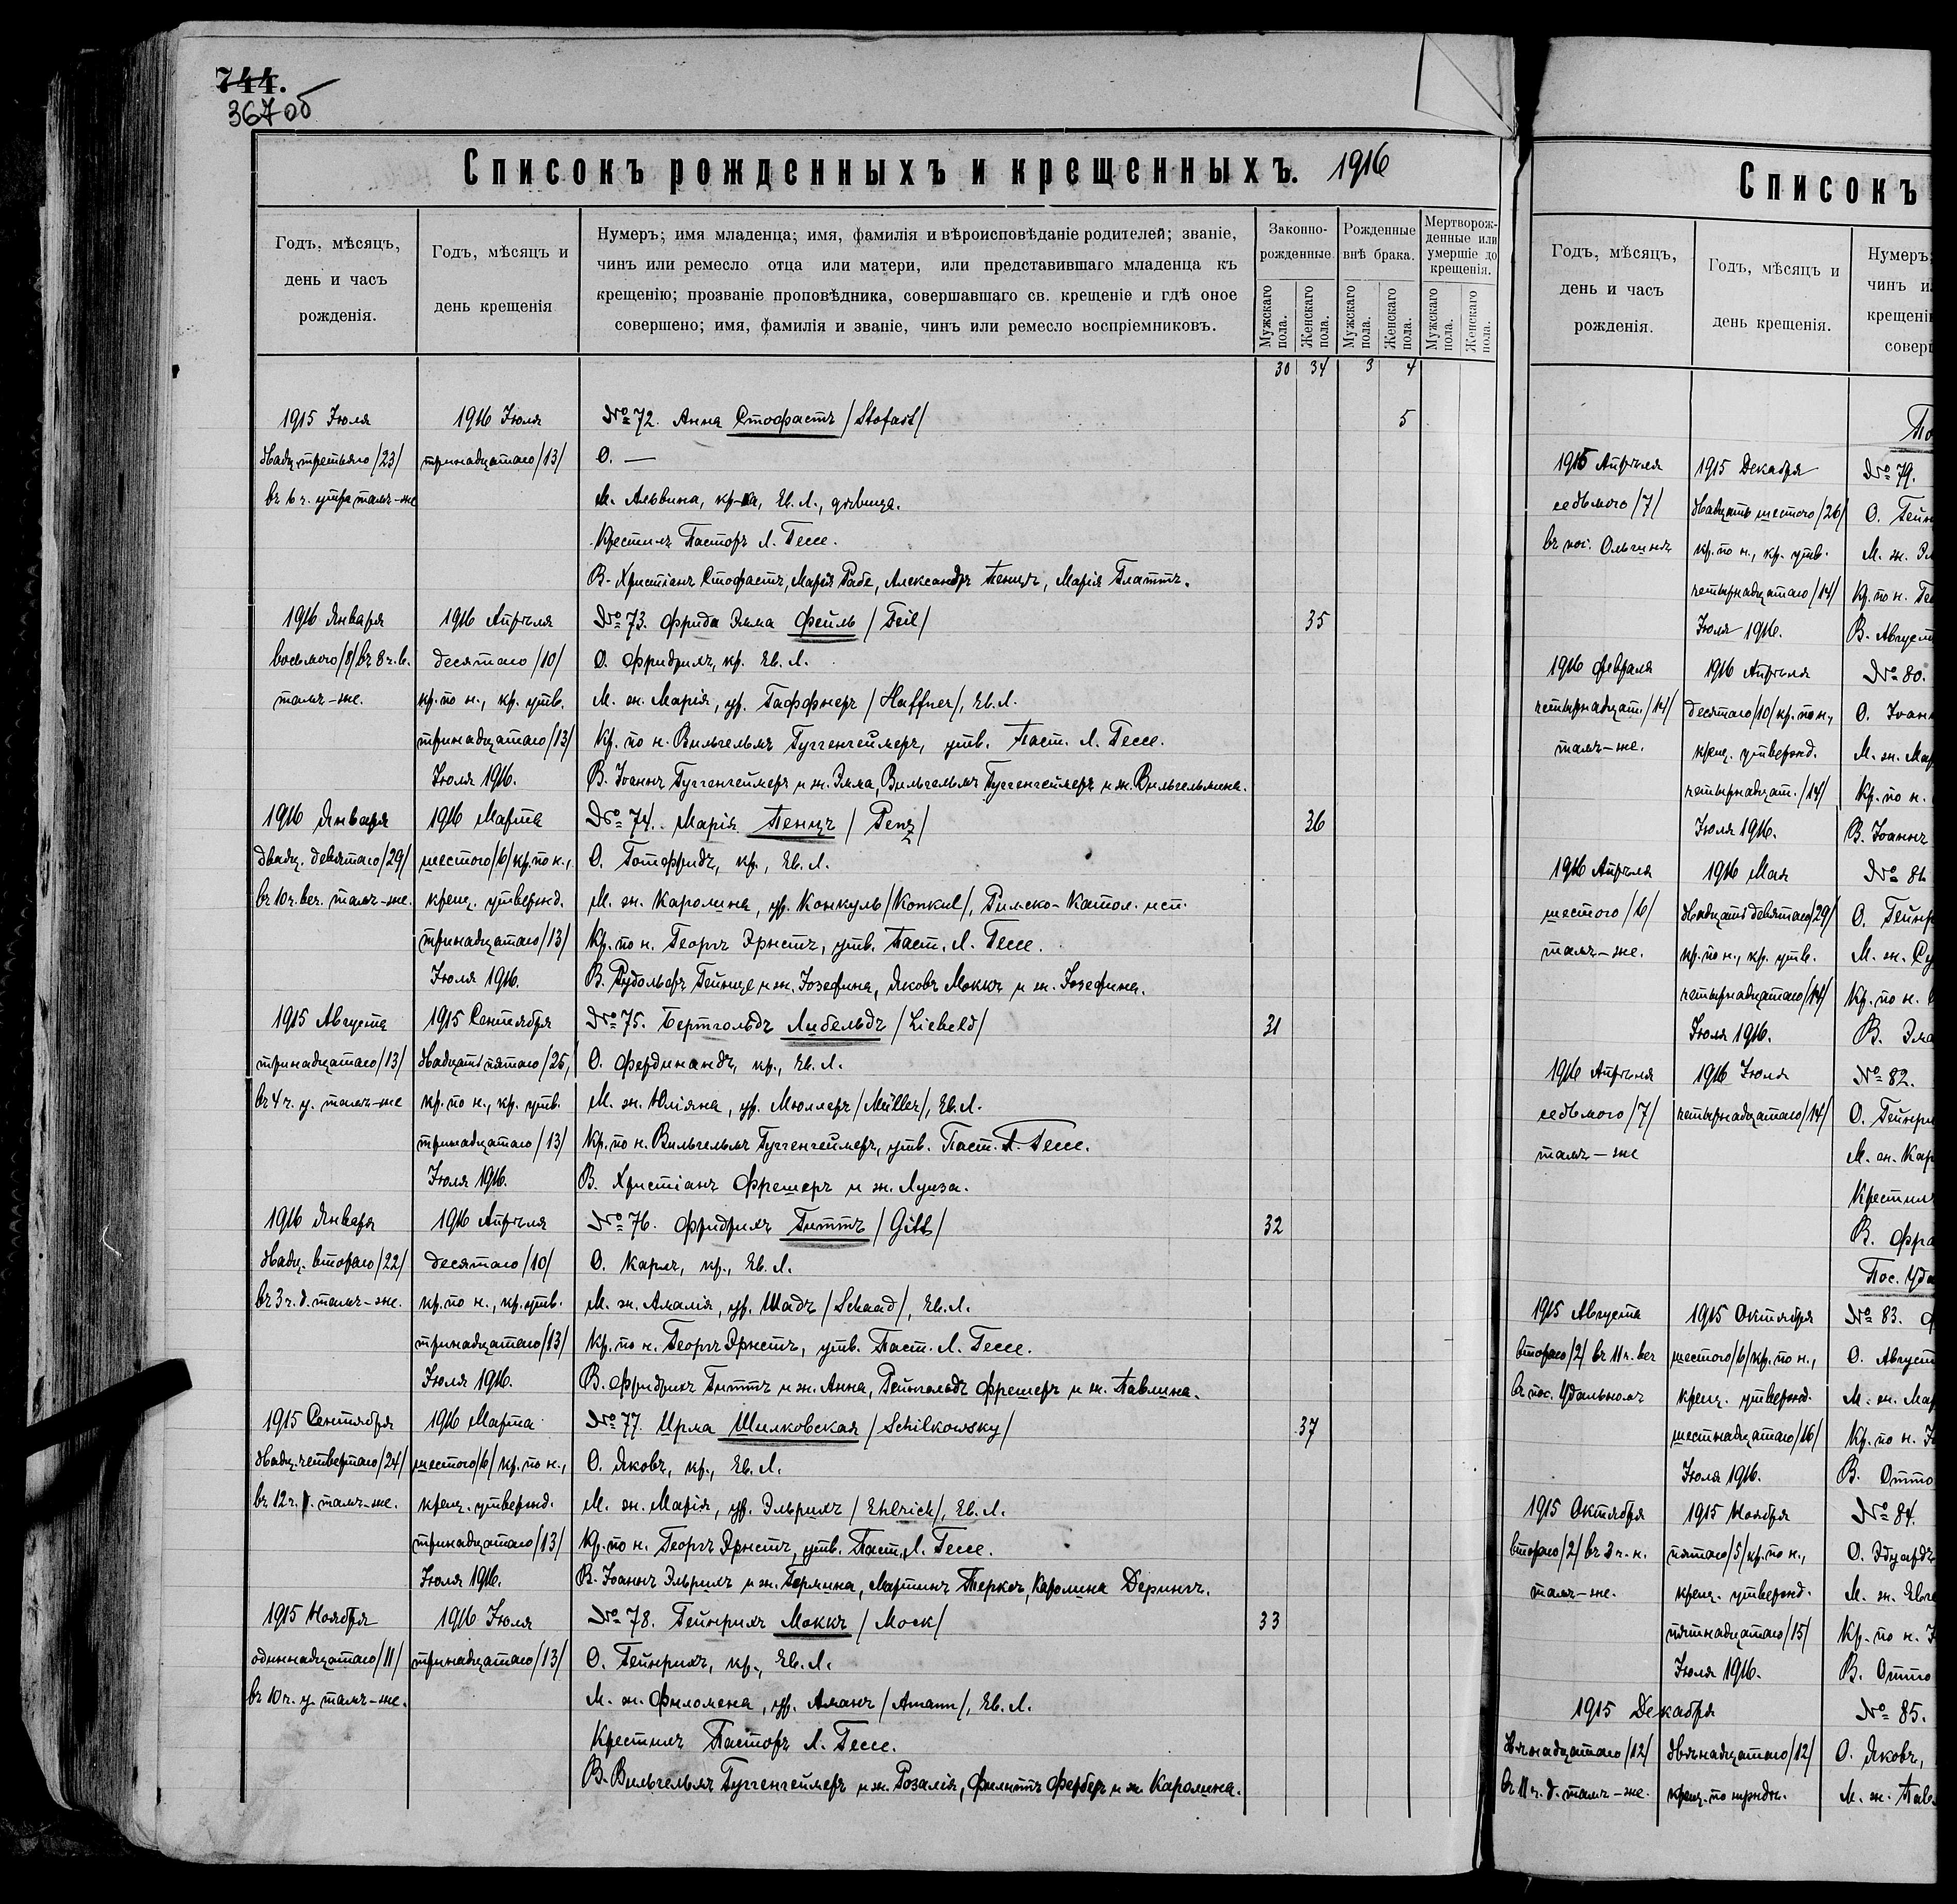 744.
367об
Списокъ рожденныхъ и крещенныхъ. 1916
Годъ, мѣсяцъ, день и часъ рожденія.
Годъ, мѣсяцъ и день крещенія
Нумеръ; имя младенца; имя, фамилія и вѣроисповѣданіе родителей; званіе,
чинъ или ремесло отца или матери, или представившаго младенца къ
крещенію; прозваніе проповѣдника, совершавшаго св. крещеніе и гдѣ оное
совершено; имя, фамилія и званіе, чинъ или ремесло воспріемниковъ.
Законно-рожденные.
Рожденные внѣ брака.
Мертворожденные или умершіе до крещенія.
Мужскаго пола.
Женскаго пола.
Мужскаго пола.
Женскаго пола.
Мужскаго пола.
Женскаго пола.
30 34 3 4
1915 Іюля 1916 Іюля № 72. Анна Стофастъ /Stofast/ 5
двадц. третьяго /23/ тринадцатаго /13/ О. —
въ 6 ч. утра тамъ-же М. Альвина, кр-ка, Ев. Л., дѣвица.
Крестилъ Пасторъ Л. Гессе.
В. Христіанъ Стофастъ, Марія Рабе, Александръ Пенцъ, Марія Платтъ.
1916 Января 1916 Апрѣля № 73. Фрида Эмма Фейль /Feil/ 35
восьмого /8/ въ 8 ч. в. десятаго /10/ О. Фридрихъ, кр. Ев. Л.
тамъ-же. кр. по н., кр. утв. М. ж. Марія, ур. Гаффнеръ /Haffner/, Ев. Л.
тринадцатаго /13/ Кр. по н. Вильгельмъ Гуггенгеймеръ, утв. Паст. Л. Гессе.
Іюля 1916. В. Іоаннъ Гуггенгеймеръ и ж. Эмма, Вильгельмъ Гуггенгеймеръ и ж. Вильгельмина.
1916 Января 1916 Марта № 74. Марія Пенцъ /Penz/ 36
двадц. девятаго /29/ шестого /6/ кр. по н., О. Готфридъ, кр., Ев. Л.
въ 10 ч. веч. тамъ-же. крещ. утвержд. М. ж. Каролина, ур. Конкуль /Konkul/, Римско-Катол. исп.
тринадцатаго /13/ Кр. по н. Георгъ Эрнстъ, утв. Паст. Л. Гессе.
Іюля 1916. В. Рудольфъ Гейнце и ж. Іозефина, Яковъ Моккъ и ж. Іозефина.
1915 Августа 1915 Сентября № 75. Бертгольдъ Либельдъ /Liebeld/ 31
тринадцатаго /13/ двадцать пятаго /25/ О. Фердинандъ, кр., Ев. Л.
въ 4 ч. у. тамъ-же кр. по н., кр. утв. М. ж. Юліяна, ур. Мюллеръ /Müller/, Ев. Л.
тринадцатаго /13/ Кр. по н. Вильгельмъ Гуггенгеймеръ, утв. Паст. Л. Гессе.
Іюля 1916. В. Христіанъ Фрешеръ и ж. Луиза.
1916 Января 1916 Апрѣля № 76. Фридрихъ Гиттъ /Gitt/ 32
двадц. второго /22/ десятаго /10/ О. Карлъ, кр., Ев. Л.
въ 3 ч. д. тамъ-же. кр. по н., кр. утв. М. ж. Амалія, ур. Шадъ /Schaad/, Ев. Л.
тринадцатаго /13/ Кр. по н. Георгъ Эрнстъ, утв. Паст. Л. Гессе.
Іюля 1916. В. Фридрихъ Гиттъ и ж. Анна, Рейнгольдъ Фрешеръ и ж. Павлина.
1915 Сентября 1916 Марта № 77. Ирма Шилковская /Schilkowsky/ 37
двадц. четвертаго /24/ шестого /6/ кр. по н., О. Яковъ, кр., Ев. Л.
въ 12 ч. тамъ-же. крещ. утвержд. М. ж. Марія, ур. Эльрихъ /Ehlrich/, Ев. Л.
тринадцатаго /13/ Кр. по н. Георгъ Эрнстъ, утв. Паст. Л. Гессе.
Іюля 1916. В. Іоаннъ Эльрихъ и ж. Термина, Мартинъ Теркъ, Каролина Дерингъ.
1915 Ноября 1916 Іюля № 78. Гейнрихъ Моккъ /Mock/ 33
одиннадцатаго /11/ тринадцатаго /13/ О. Гейнрихъ, кр., Ев. Л.
въ 10 ч. у. тамъ-же. М. ж. Филомена, ур. Аманъ /Amann/, Ев. Л.
Крестилъ Пасторъ Л. Гессе.
В. Вильгельмъ Гуггенгеймеръ и ж. Розалія, Филиппъ Ферберъ и ж. Каролина.
Списокъ
Годъ, мѣсяцъ, день и часъ рожденія.
Годъ, мѣсяцъ и день крещенія.
Нумеръ;
чинъ и
крещені
соверш
По
1915 Апрѣля 1915 Декабря № 79.
седьмого /7/ двадцать шестого /26/ О. Гейн
въ пос. Ольгинѣ кр. по н., кр. утв. М. ж. Эм
четырнадцатаго /14/ Кр. по н. Ге
Іюля 1916. В. Август
1916 Февраля 1916 Апрѣля № 80.
четырнадцат. /14/ десятаго /10/ кр. по н., О. Іоан
тамъ-же. крещ. утвержд. М. ж. Мар
четырнадцат. /14/ Кр. по н.
Іюля 1916. В. Іоаннъ
1916 Апрѣля 1916 Мая № 81.
шестого /6/ двадцать девятаго /29/ О. Гейнр
тамъ-же. кр. по н., кр. утв. М. ж. Су
четырнадцатаго /14/ Кр. по н.
Іюля 1916. В. Эма
1916 Апрѣля 1916 Іюля № 82.
седьмого /7/ четырнадцатаго /14/ О. Гейнри
тамъ-же М. ж. Кар
Крестилъ
В. Фра
Пос. Уда
1915 Августа 1915 Октября № 83.
второго /2/ въ 11 ч. веч шестого /6/ кр. по н., О. Август
въ пос. Удальномъ крещ. утвержд. М. ж. Мар
шестнадцатаго /16/ Кр. по н.
Іюля 1916. В. Отто
1915 Октября 1915 Ноября № 84.
второго /2/ въ 3 ч. н. пятаго /5/ кр. по н., О. Эдуардъ
тамъ-же. крещ. утвержд. М. ж. Евге
пятнадцатаго /15/ Кр. по н.
Іюля 1916. В. Отто
1915 Декабря № 85.
двѣнадцатаго /12/ двѣнадцатаго /12/ О. Яковъ,
въ 11 ч. д. тамъ-же. крещ. по нуждѣ. М. ж. Павл